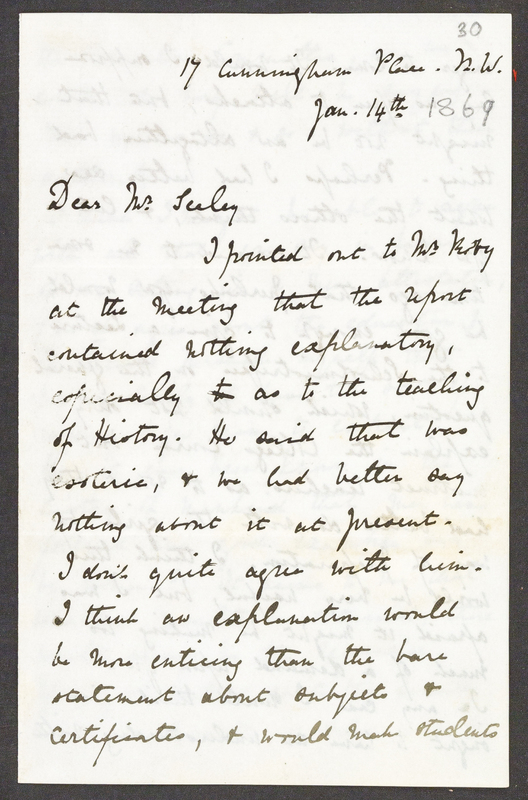 30
17 Cunningham Place. N.W.
Jan. 14th 1869
Dear Mr Seeley
I pointed out to Mr Roby
at the meeting that the report
contained nothing explanatory,
especially to as to the teaching
of History. He said that was
esoteric, & we had better say
nothing about it at present.
I don't quite agree with him.
I think an explanation would
be more enticing than the bare
statement about subjects &
certificates, & would make students